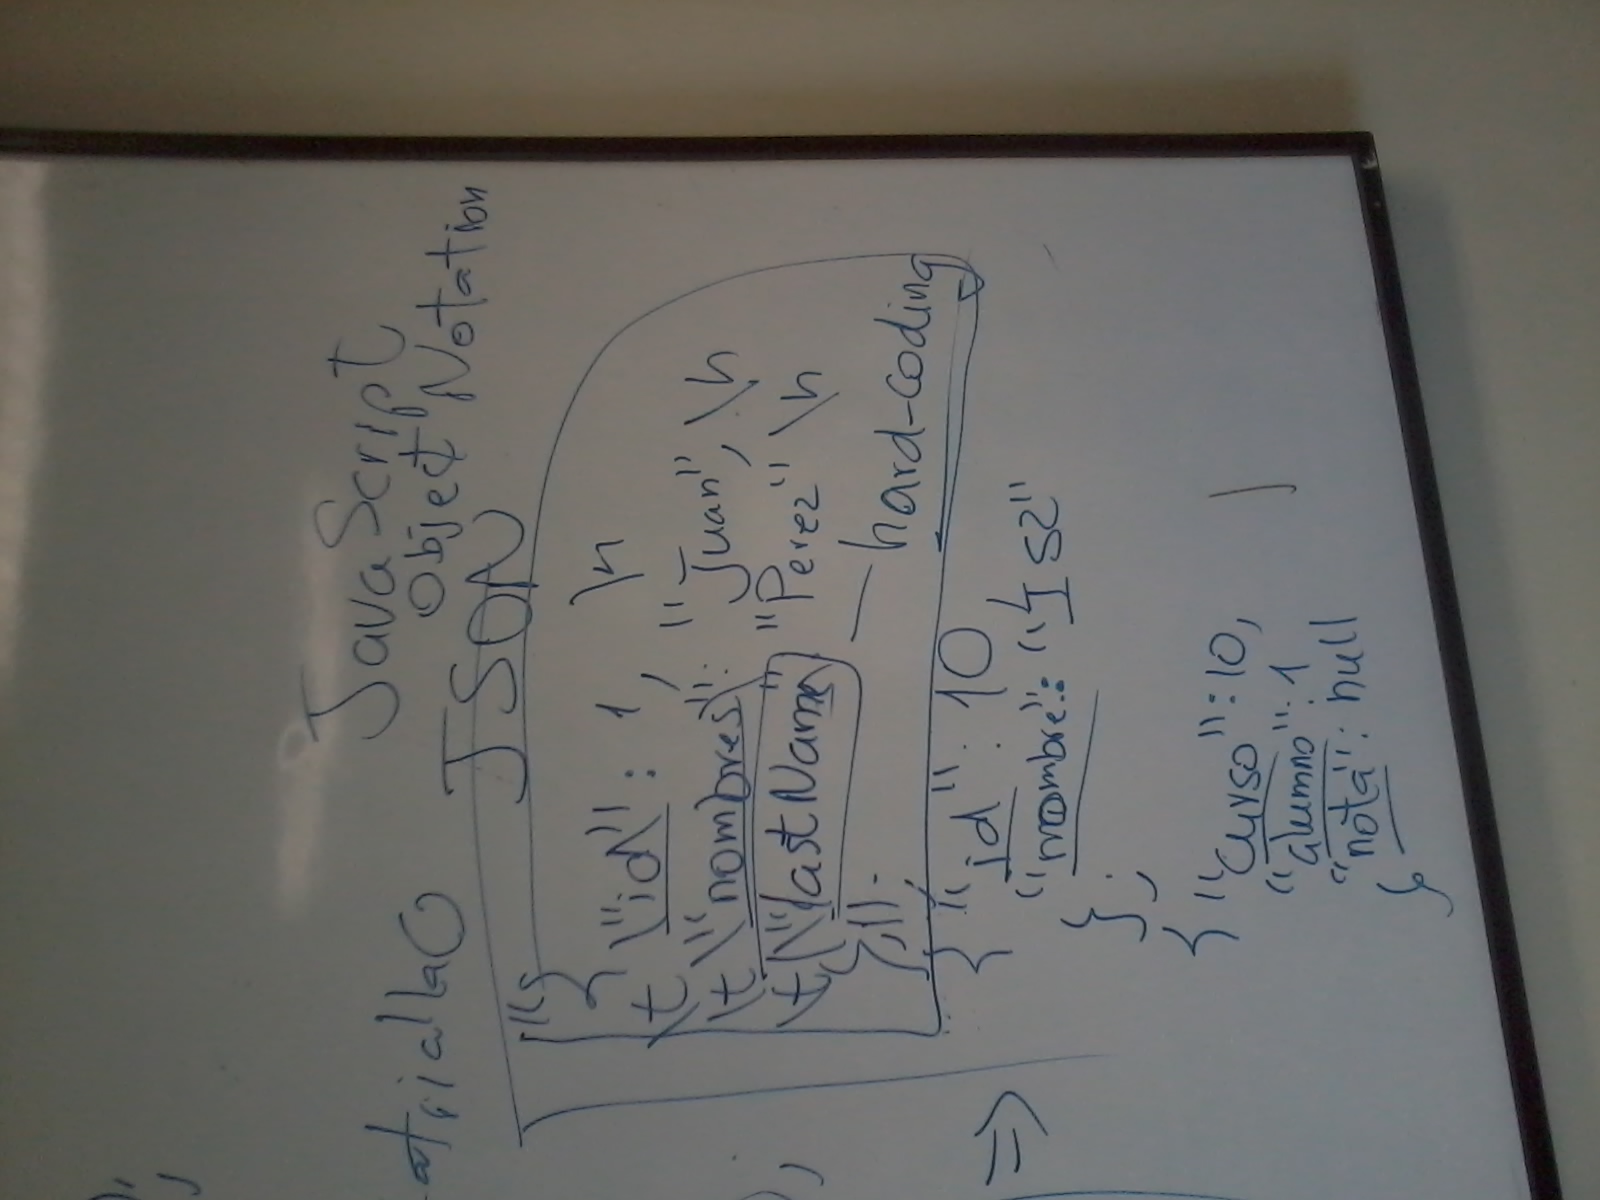 );
JavaScript
Object Notation
JSON
"{
\t \"id\" : 1, \n
\t \"nombres\": "Juan", \n
\t \"lastName" "Perez" \n
}";
hard-coding
);
=>
{ "id": 10,
"nombre": "IS2"
};
{ "curso": 10,
"alumno": 1
"nota": null
}